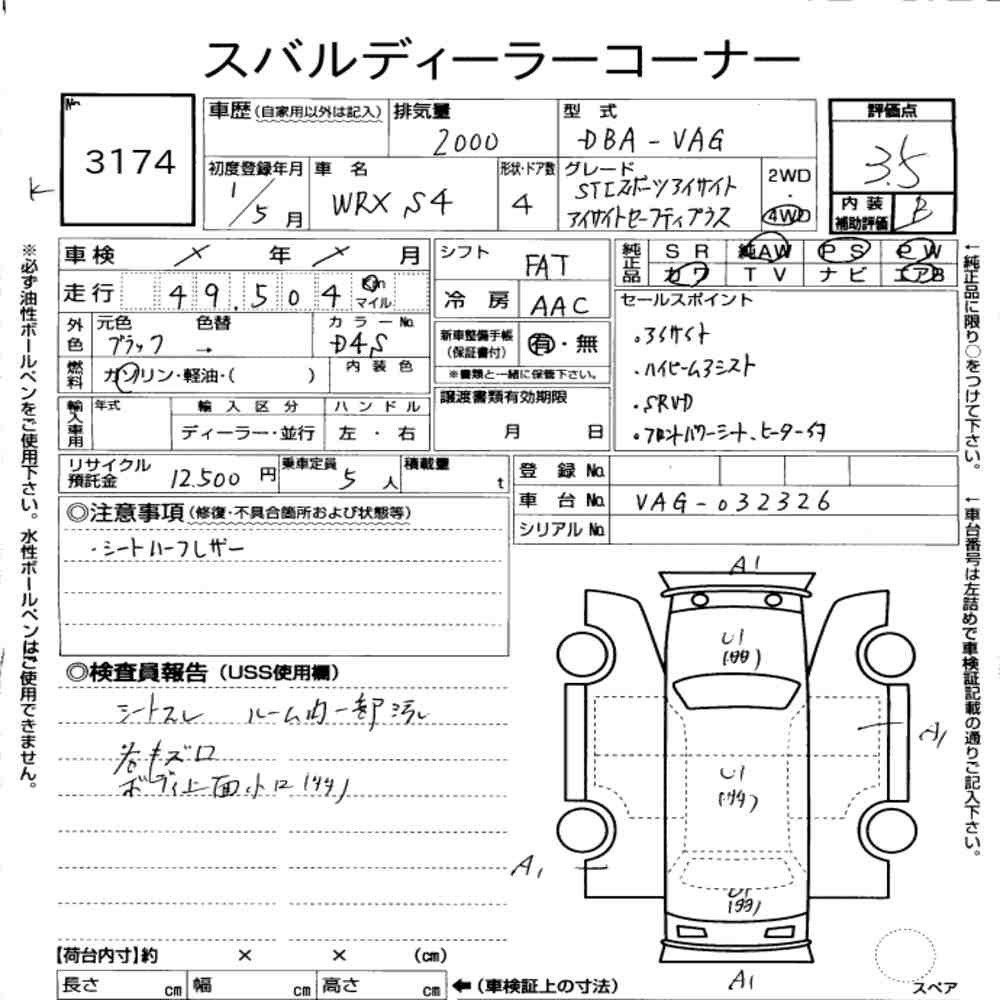 スバルディーラーコーナー
No.
3174
車歴(自家用以外は記入)
排気量
2000
型 式
DBA-VAG
評価点
3.5
初度登録年月
1/5月
車 名
WRX S4
形状・ドア数
4
グレード
STIスポーツアイサイト
アイサイトセーフティプラス
2WD
・
4WD
内 装
補助評価
B
車検 × 年 × 月
シフト
FAT
純正品
SR 純AW PS PW
カワ TV ナビ エアB
走行 49.504 Km
マイル
冷 房
AAC
セールスポイント
・アイサイト
・ハイビームアシスト
・SRVD
・フロントパワーシート、ヒーター付
外色
元色
ブラック
色替
→
カラーNo.
D4S
新車整備手帳
(保証書付)
有・無
※書類と一緒に保管下さい。
燃料
ガソリン・軽油・( )
内 装 色
譲渡書類有効期限
月 日
輸入車用
年式
輸 入 区 分
ディーラー・並行
ハ ン ド ル
左 ・ 右
リサイクル
預託金
12.500 円
乗車定員
5 人
積載量
t
登 録 No.
車 台 No. VAG-032326
シリアル No.
◎注意事項(修復・不具合箇所および状態等)
・シートハーフレザー
◎検査員報告(USS使用欄)
シートスレ ルーム内一部汚レ
ボディ上面小ロ
A1
U1
U1
U1
A1
A1
A1
【荷台内寸】約 × × (cm)
長さ cm 幅 cm 高さ cm
←(車検証上の寸法)
スペア
※必ず油性ボールペンをご使用下さい。水性ボールペンはご使用できません。
←純正品に限り○をつけて下さい。
←車台番号は左詰めで車検証記載の通りご記入下さい。